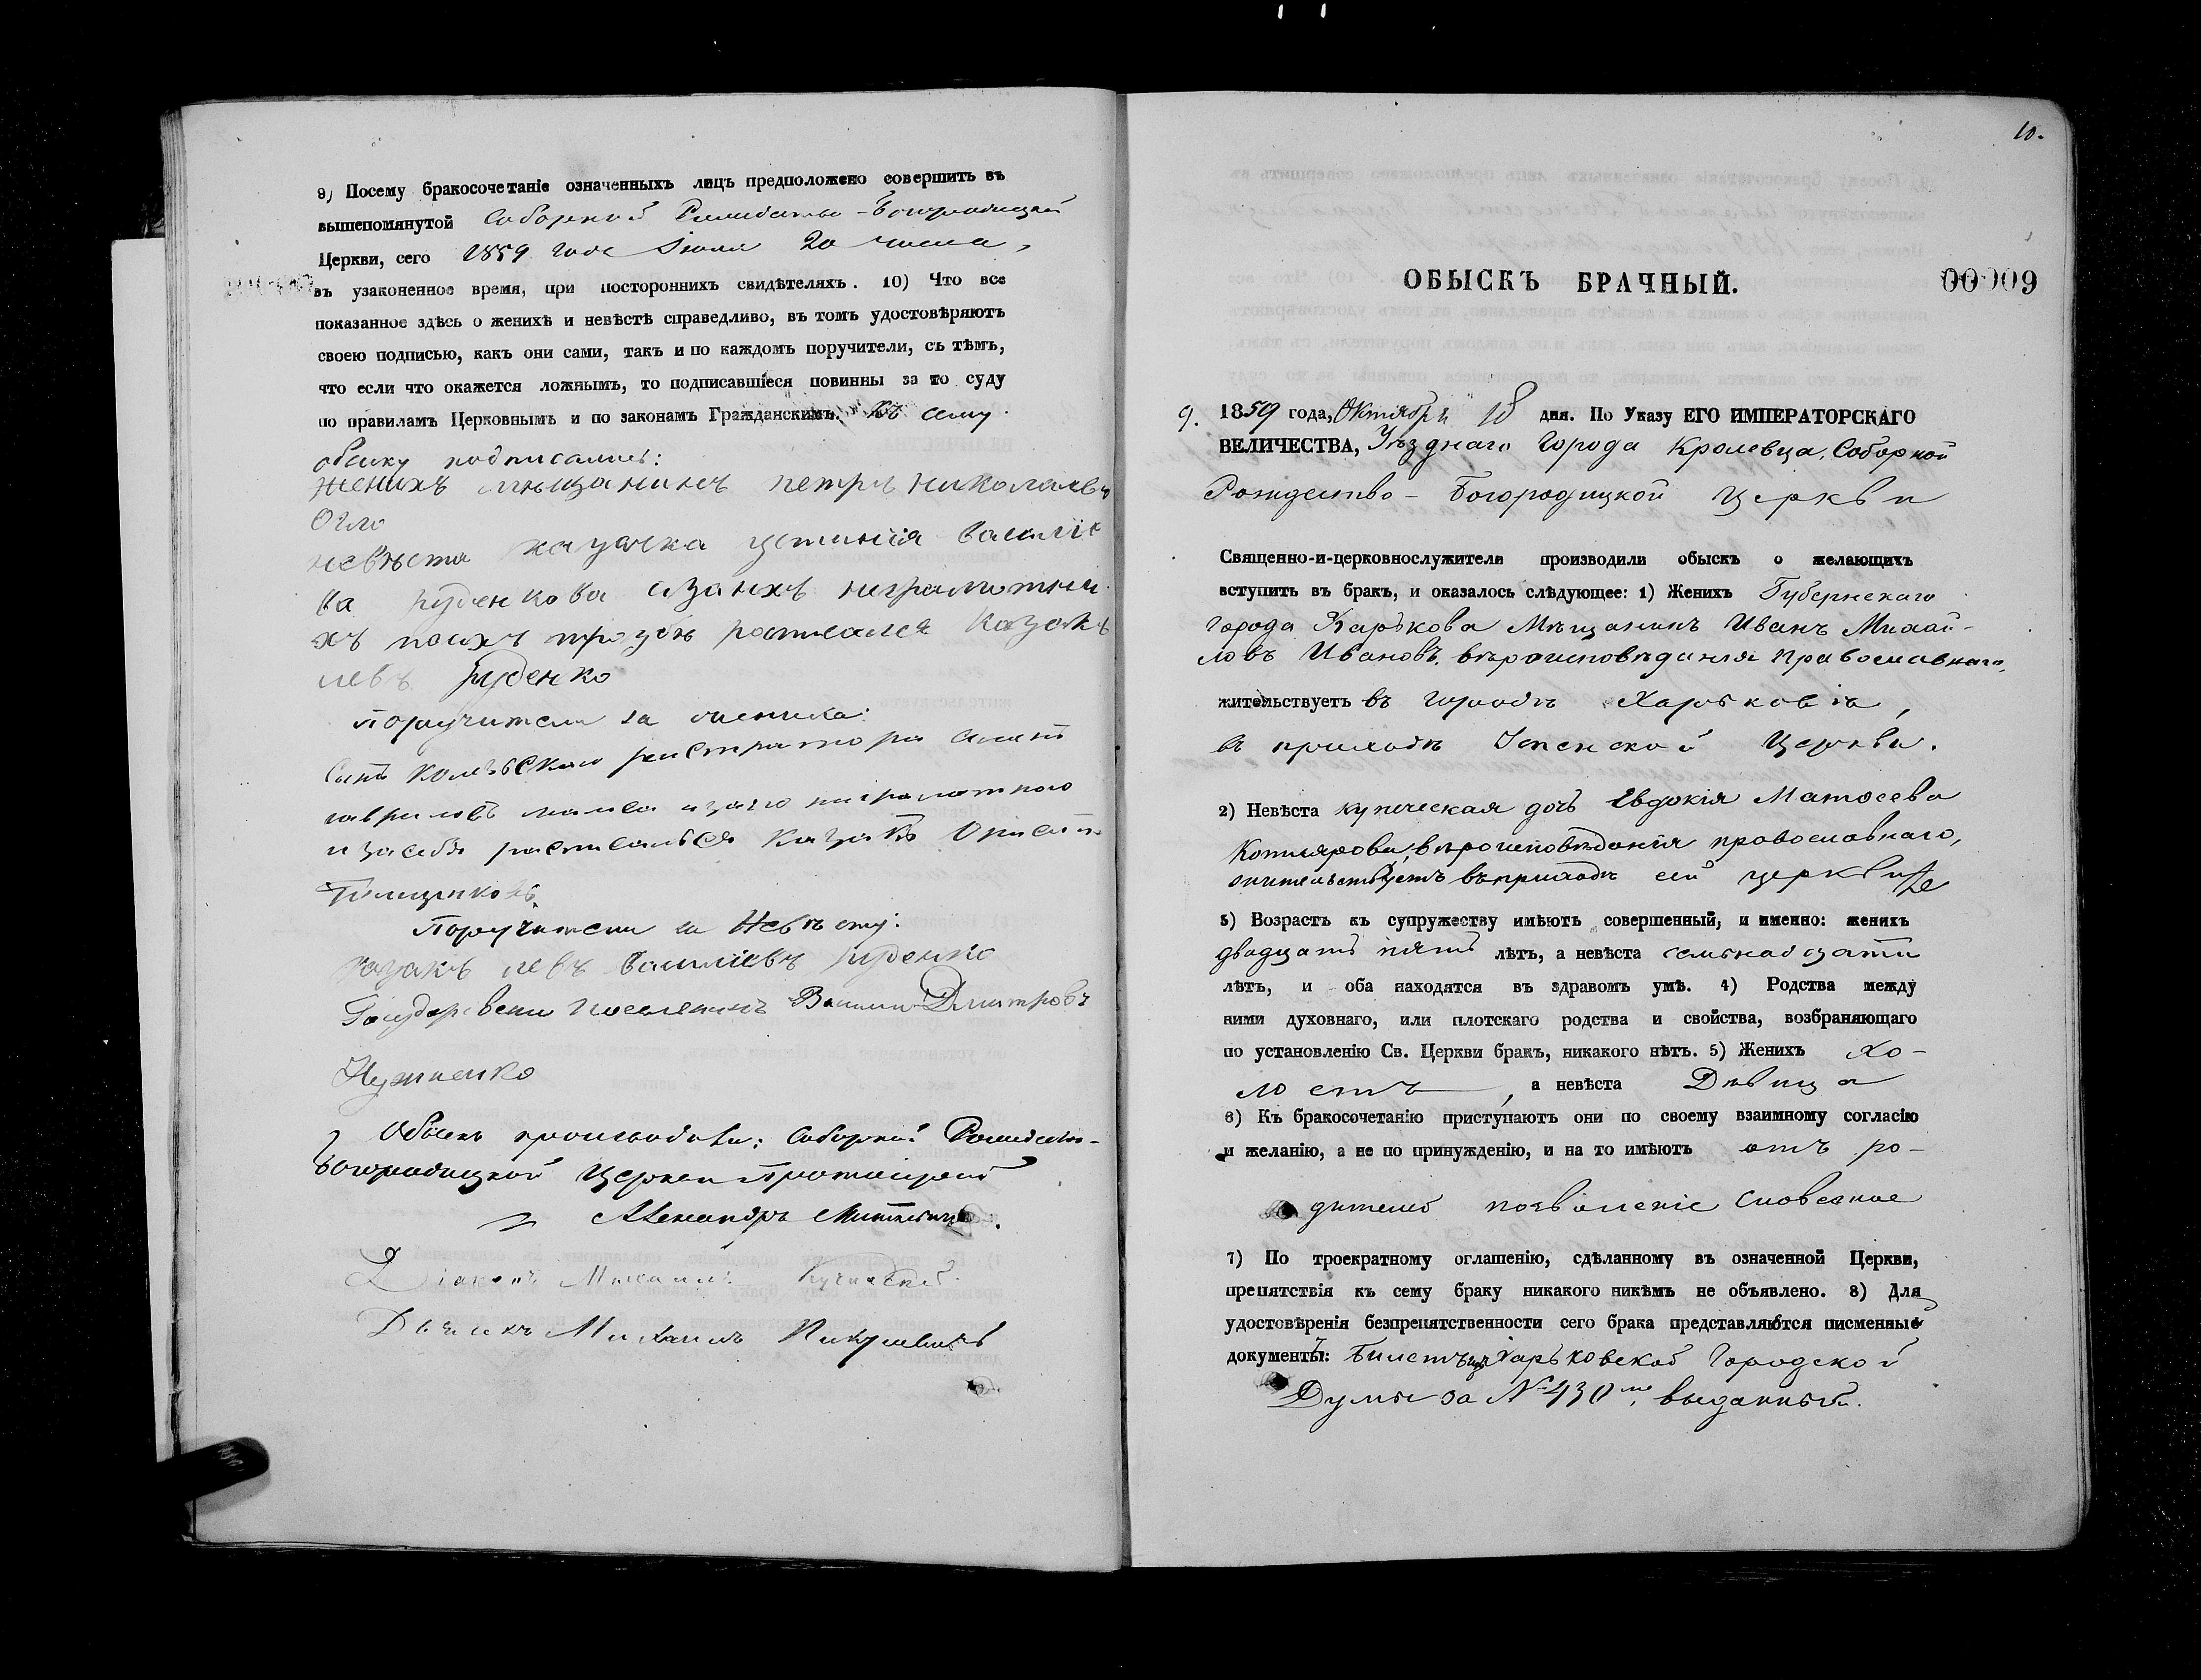 9) Посему бракосочетаніе означенныхъ лицъ предположено совершить въ
вышепомянутой Соборной Рождество-Богородицкой
Церкви, сего 1859 года Іюля 20 числа,
въ узаконенное время, при постороннихъ свидѣтеляхъ. 10) Что все
показанное здѣсь о женихѣ и невѣстѣ справедливо, въ томъ удостовѣряютъ
своею подписью, какъ они сами, такъ и по каждомъ поручители, съ тѣмъ,
что если что окажется ложнымъ, то подписавшіеся повинны за то суду
по правиламъ Церковнымъ и по законамъ Гражданскимъ. Къ сему
обыску подписались:
женихъ мѣщанинъ петръ николаевъ
невѣста казачка устинія василіе
ва руденкова азанихъ неграмотны
хъ поихъ прозбѣ росписался Казакъ
левъ руденко
Поручители за жениха:
Сынъ колежскаго регистратора
гаврииловъ изаего неграмотного
и засебя росписалься казакъ
Поручители за Невѣсту:
казакъ левъ василіевъ руденко
Государсвени поселянинъ Васили Дмитровъ
Нужненко
Обыскъ производили: Соборной Рождество-
Богородицкой Церкви Протоіерей
Александръ
Діаконъ Михаилъ
Дьячокъ Михаилъ
10.
ОБЫСКЪ БРАЧНЫЙ.
00009
9. 1859 года, Октября 18 дня. По Указу ЕГО ИМПЕРАТОРСКАГО
ВЕЛИЧЕСТВА, Уѣзднаго Города Кролевца, Соборной
Рождество-Богородицкой Церкви
Священно-и-церковнослужители производили обыскъ о желающихъ
вступить въ бракъ, и оказалось слѣдующее: 1) Женихъ Губернскаго
города Харькова Мѣщанинъ Иванъ Михай-
ловъ Ивановъ, вѣроисповѣданія православнаго,
жительствуетъ въ городѣ Харьковѣ,
въ приходѣ Успенской Церкви.
2) Невѣста купеческая дочь Евдокія Матвеева
Котлярова, вѣроисповѣданія православнаго,
жительствуетъ въ приходѣ сей церкви
3) Возрастъ къ супружеству имѣютъ совершенный, и именно: женихъ
двадцать пять лѣтъ, а невѣста семьнадцати
лѣтъ, и оба находятся въ здравомъ умѣ. 4) Родства между
ними духовнаго, или плотскаго родства и свойства, возбраняющаго
по установленію Св. Церкви бракъ, никакого нѣтъ. 5) Женихъ хо-
лостъ, а невѣста Дѣвица
6) Къ бракосочетанію приступаютъ они по своему взаимному согласію
и желанію, а не по принужденію, и на то имѣютъ отъ ро-
дителей позволеніе словесное
7) По троекратному оглашенію, сдѣланному въ означенной Церкви,
препятствія къ сему браку никакого никѣмъ не объявлено. 8) Для
удостовѣренія безпрепятственности сего брака представляются писменные
документы: Билетъ изъ Харьковской Городской
Думы за № 430 выданный.